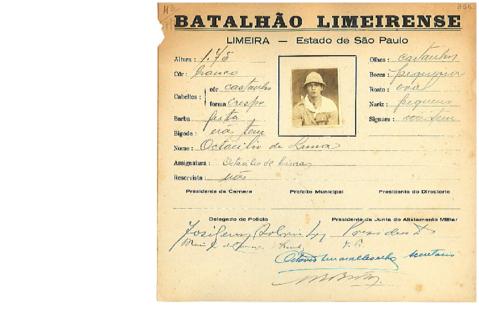 BATALHÃO LIMEIRENSE
LIMEIRA — Estado de São Paulo
Altura: 1.75 Olhos: castanhos
Côr: branco Bocca: pequena
Cabellos: côr castanho Rosto: oval
forma crespo Nariz: pequeno
Barba: feita Signaes: não tem
Bigode: não tem
Nome: Octacilio de Lima
Assignatura: Octacilio de Lima
Reservista: não
Presidente da Camara Prefeito Municipal Presidente do Directorio
Delegado de Policia Presidente da Junta de Alistamento Militar
Presidente
secretario